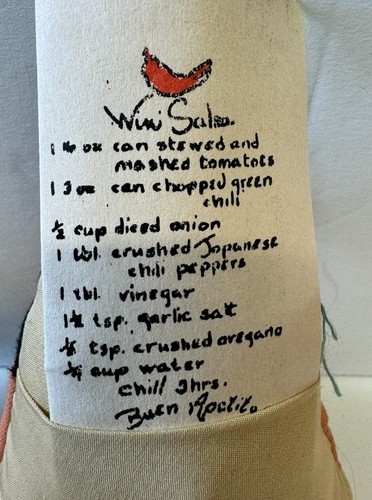 Wini Salsa.
1 16 oz can stewed and
mashed tomatoes
1 3 oz can chopped green
chili
½ cup diced onion
1 tbl. crushed Japanese
chili peppers
1 tbl. vinegar
1½ tsp. garlic salt
tsp. crushed oregano
cup water
chill 3hrs.
Buen Apetit.